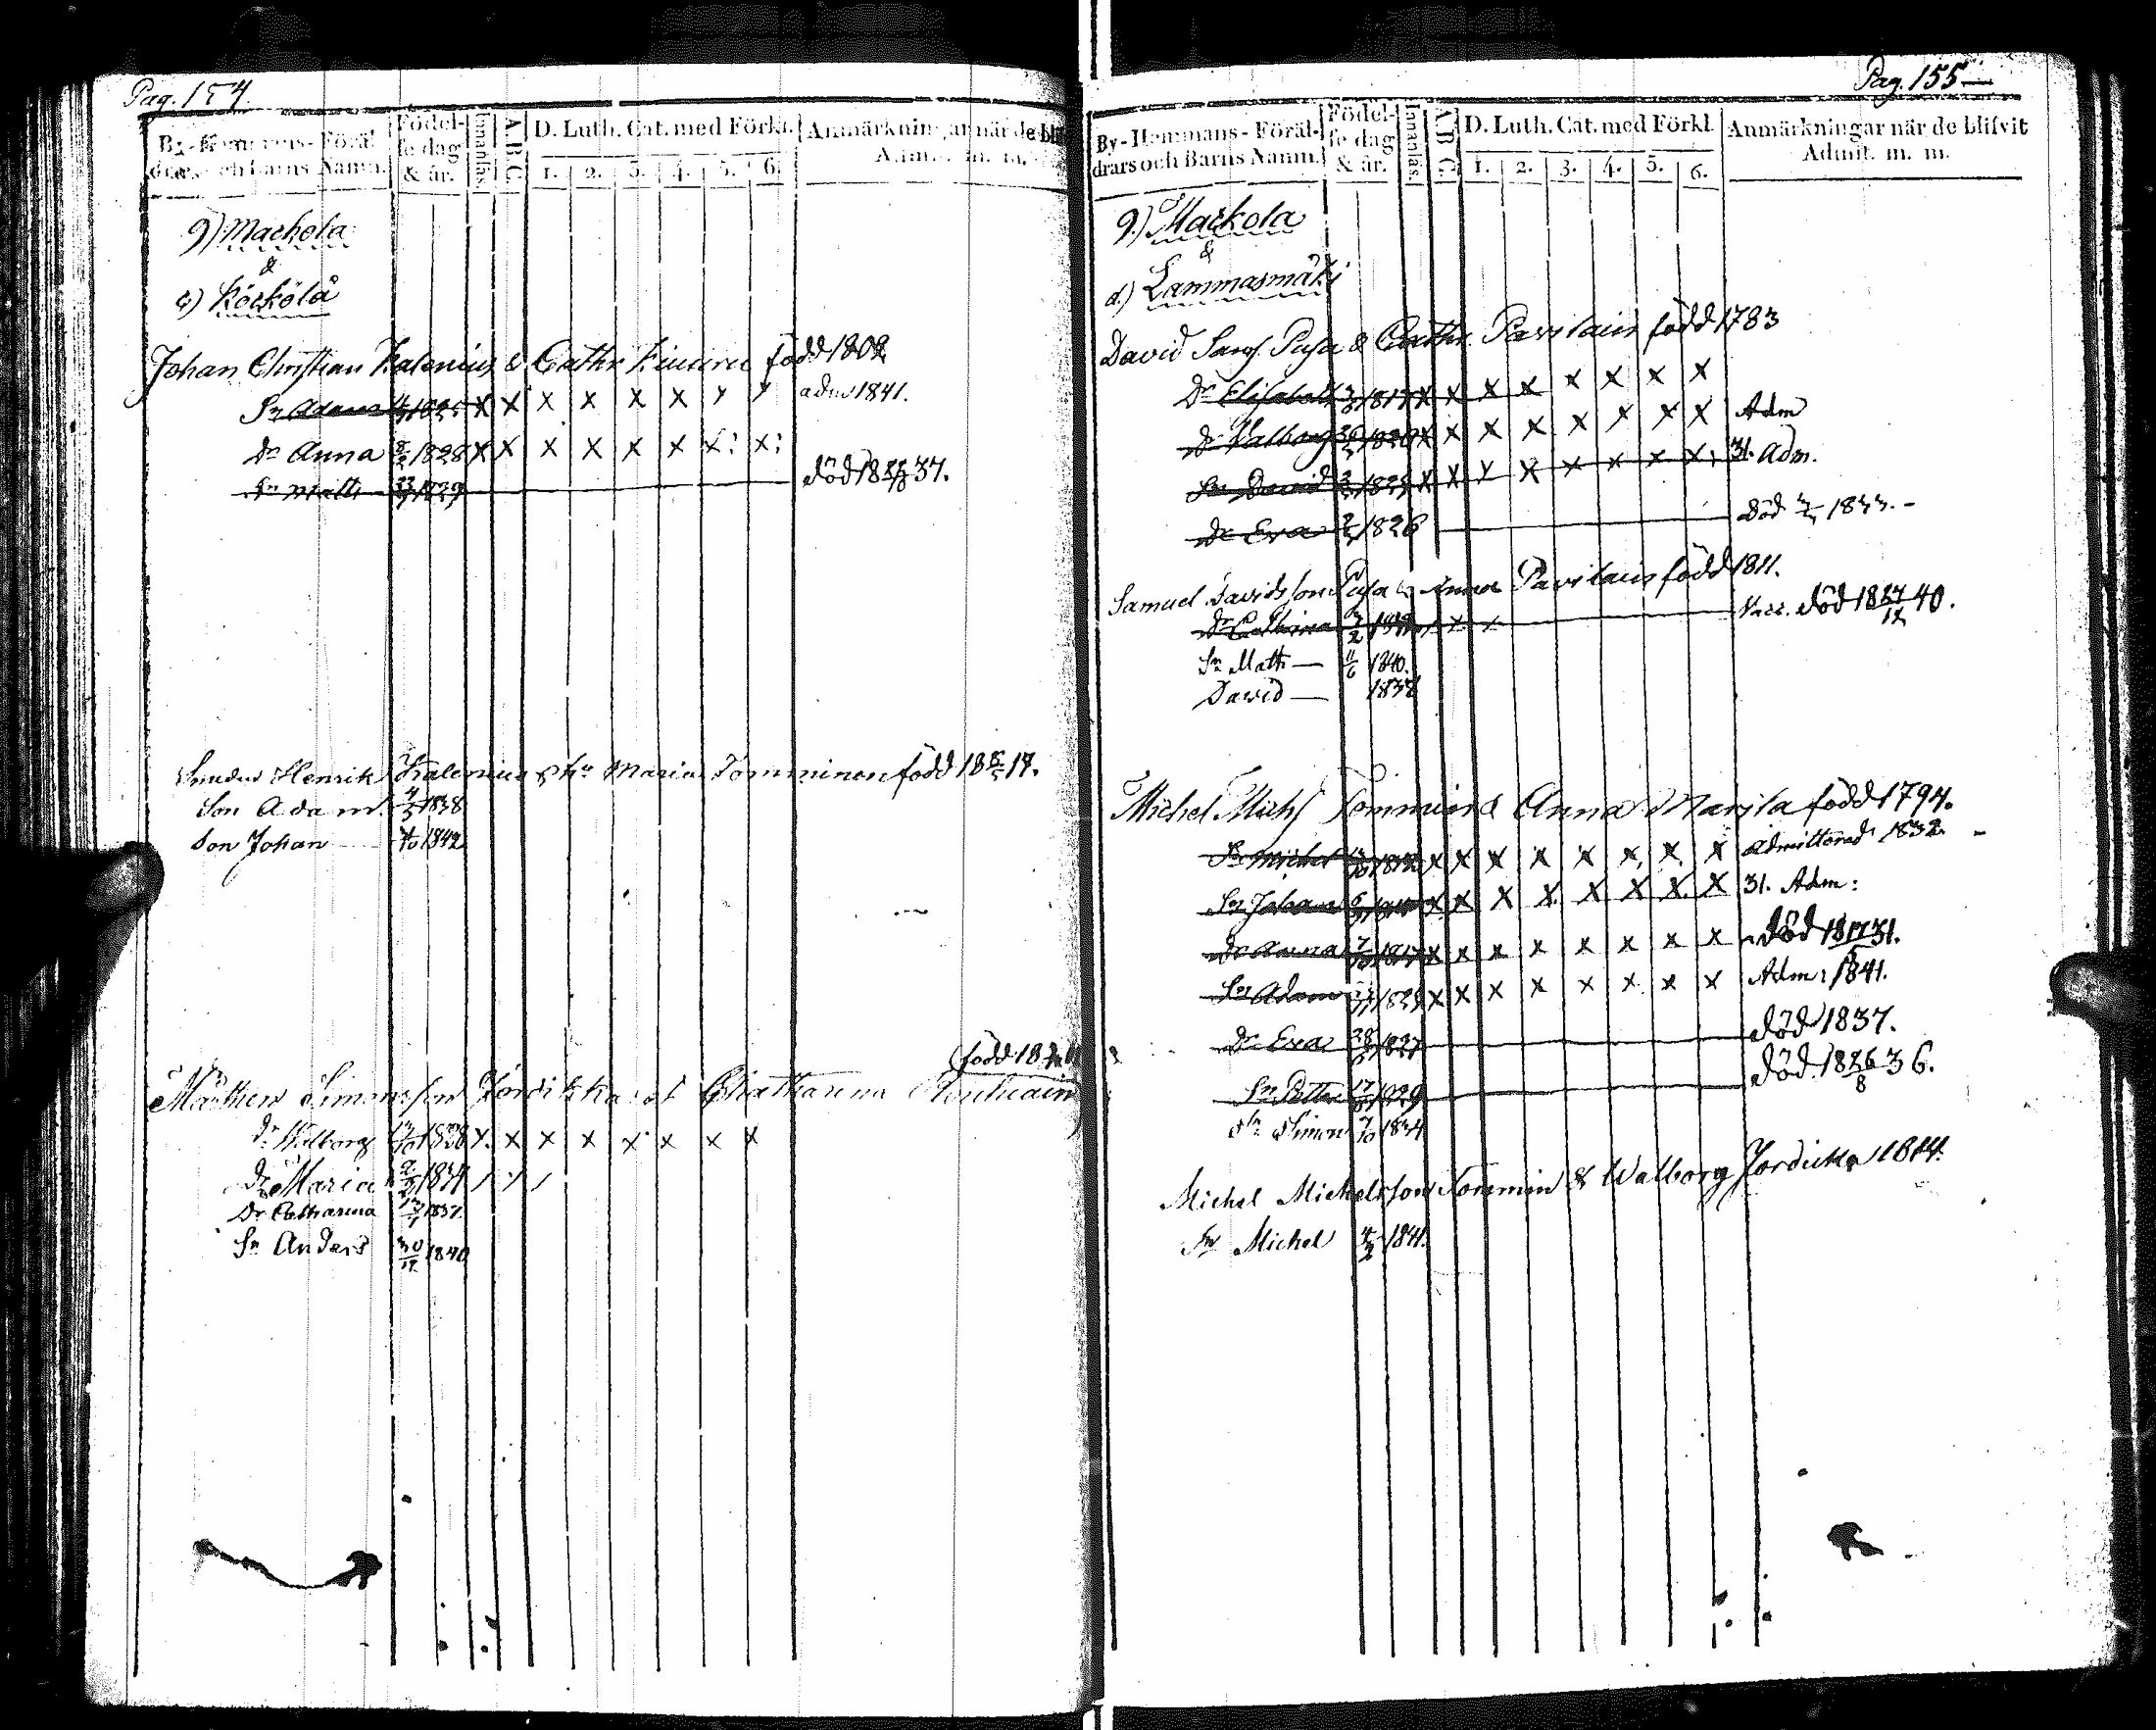 Pag. 154.
By-Hemmans-Föräl-
drars och Barns Namn.
Födel-
se dag
& år.
Innanläs.
A.B.C.
D. Luth. Cat. med Förkl.
1. 2. 3. 4. 5. 6.
Anmärkningar när de bli
9) Mackola
&
c) Körkölä
Johan Christian Kalenius & Cathr. född 1802
Sn Adam x x x x x x x x adm 1841.
Dr Anna 1828 x x x x x x x: x:
Sn Matts 1829 död 18 37.
Henrik Kalenius & hu Maria Tomminen född 18 17.
Son Adam. 4/3 1838
Son Johan 1842
född 18
Mathew Simonsson Jordikka & Chatharina
dr Walborg 1828 x. x x x x x x x
Dr Maria 1834 / / /
Dr Catharina 1837
Sn Anders 1840
Pag. 155
By-Hemmans-Föräl-
drars och Barns Namn.
Födel-
se dag
& år.
Innanläs.
A B C.
D. Luth. Cat. med Förkl.
1. 2. 3. 4. 5. 6.
Anmärkningar när de blifvit
Admit. m. m.
9.) Mackola
&
d.) Lammasmäki
David Pusa & Cathr. Pavilain född 1783
Dr Elisabet 1817 x x x x x x x x
Dr Valborg 1820 x x x x x x x x Adm
Sn David x x x x x x x x 31. Adm.
Dr Eva 1826 Död 1833.
Samuel Davidsson Pusa & Anna Pavilain född 1811.
Dr Vacc. död 18 27/12 40.
Sn Matts — 11/6 1840.
David — 1838
Michel Tommin & Anna Marjta född 1794.
Sn Michel x x x x x x x x admitterad 1832.
Sn Johan x x x x x x x x 31. Adm:
Dr Anna 1817 x x x x x x x x död 18 17 31.
Sn Adam x x x x x x x x Adm: 1841.
Dr Eva 1827 död 1837.
Sn Petter 1829 död 18 26/8 36.
Sn Simon 7/10 1834
Michel Michelsson Tommin & Walborg Jordikka 1814.
Sn Michel 1841.